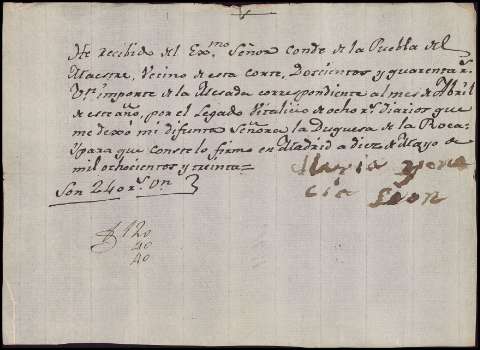 He recibido del Ex.mo Señor Conde de la Puebla del
Maestre, Vecino de esta Corte, Doscientos y quarenta r.s
V.n importe de la Mesada correspondiente al mes de Abril
de este año, por el Legado Vitalicio de ocho r.s diarios que
me dexó mi difunta Señora la Duquesa de la Roca
Y para que conste lo firmo en Madrid a diez de Mayo de
mil ochocientos y treinta=
Son 240 r.s Vn
Maria Yona
cia Leon
120
40
40